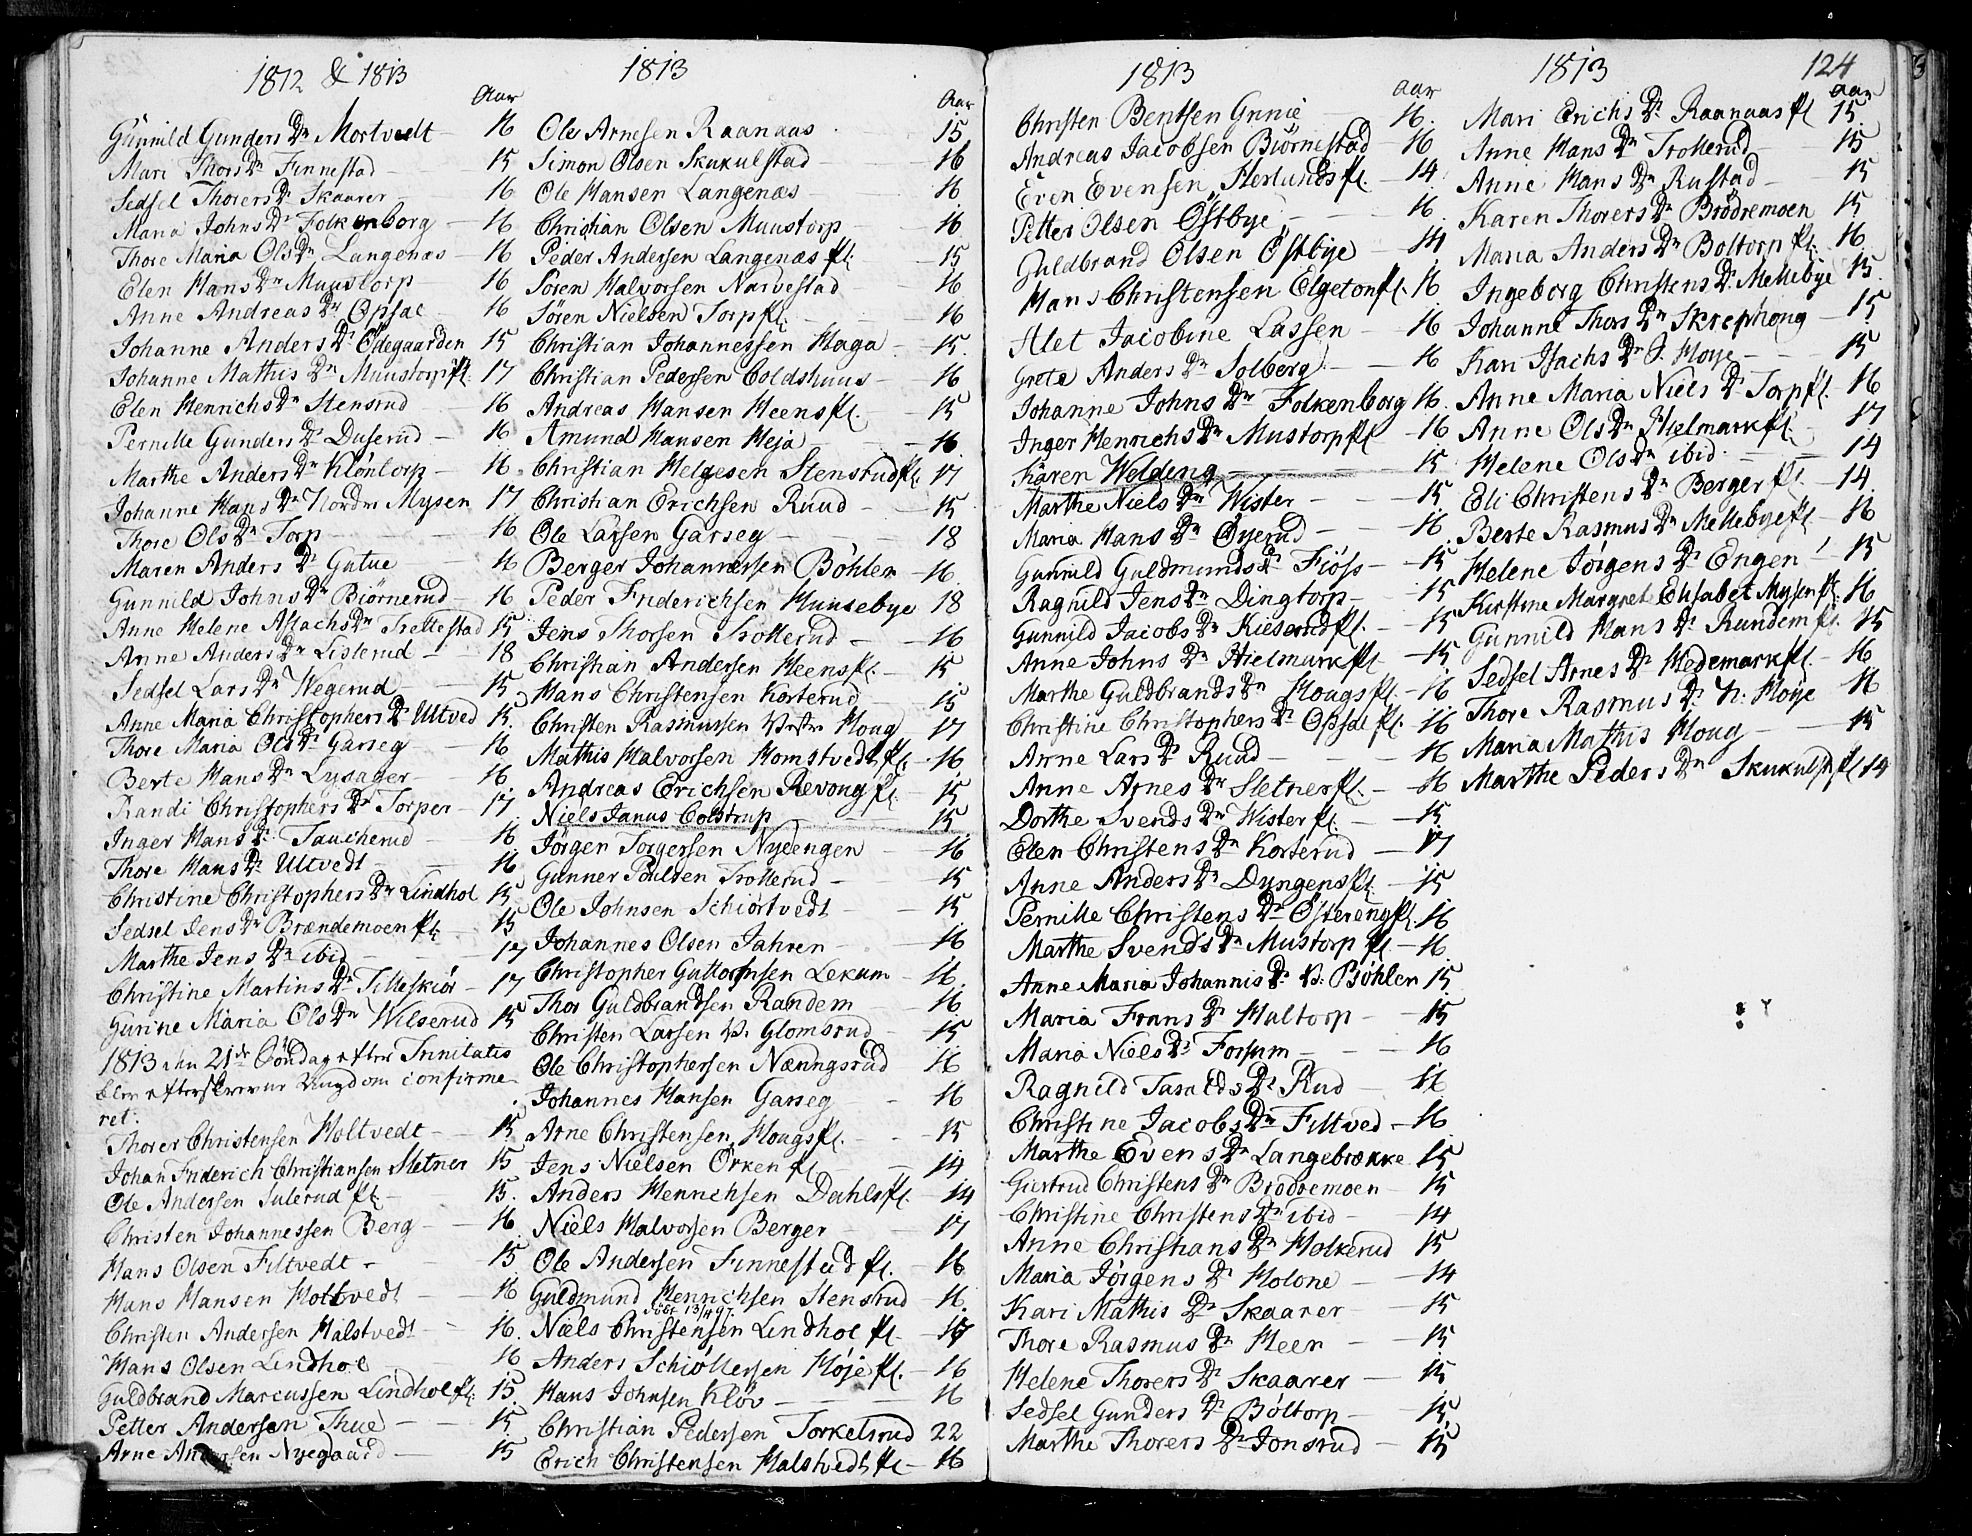 1812 & 1813
Aar
Gunnild Gunders Dr Mortvedt — 16
Mari Thors Dr Finnestad — 15
Sedsel Thorers Dr Skaarer — 16
Maria Johns Dr Folkenborg — 16
Thore Maria Ols Dr Langenæs — 16
Elen Hans Dr Muustorp — 16
Anne Andreas Dr Opsal — 16
Johanne Anders Dr Ödegaarden 15
Johanne Mathis Dr Muustorpfl. 17
Elen Henrichs Dr Stensrud — 16
Pernille Gunders Dr Duserud — 16
Marthe Anders Dr Klöntorp — 16
Johanne Hans Dr Nordre Mysen 17
Thore Ols Dr Torp — 16
Maren Anders Dr Gutue — 16
Gunnild Johns Dr Biörnerud — 16
Anne Helene Aslachs Dr Trettestad 15
Anne Anders Dr Listerud — 18
Sedsel Lars Dr Wegerud — 15
Anne Maria Christophers Dr Ultved 15
Thore Maria Ols Dr Garseg — 16
Berte Hans Dr Lysager — 16
Randi Christophers Dr Torper — 17
Inger Hans Dr Taucherud — 16
Thore Hans Dr Ultvedt — 16
Christine Christophers Dr Lindhol 15
Sedsel Jens Dr Brændemoen fl. 15
Marthe Jens Dr ibid — 17
Christine Martins Dr Tilleskiör — 17
Gurine Maria Ols Dr Wilserud 15
1813 den 21de Söndag efter Trinitatis
blev efterskrevne Ungdom confirme
ret:
Thorer Christensen Holtvedt — 15
Johan Friderich Christiansen Sletner 15
Ole Andersen Sulerud fl. — 15.
Christen Johannessen Berg — 16
Hans Olsen Filtvedt — 15
Hans Hansen Holtvedt — 16
Christen Andersen Halstvedt — 16.
Hans Olsen Lindhol — 16
Guldbrand Marcussen Lindhol fl. 15
Petter Andersen Thue — 15
Arne Andersen Nyegaard — 15
1813
Aar
Ole Arnesen Raanaas 15
Simon Olsen Skukulstad — 16
Ole Hansen Langenæs — 16
Christian Olsen Muustorp — 16
Peder Andersen Langenæs fl. — 15
Sören Halvorsen Narvestad 16
Sören Nielsen Torpfl. — 16
Christian Johannessen Haga — 15.
Christian Pedersen Coldshuus — 16
Andreas Hansen Heensfl. 15
Amund Hansen Heja — 16
Christian Helgesen Stensrudfl. 17
Christian Erichsen Ruud — 15
Ole Larsen Garseg — 18
Berger Johannessen Böhler — 16
Peder Friderichsen Huusebye 18
Jens Thorsen Trollerud — 16
Christian Andersen Heensfl. — 15
Hans Christensen Korterud — 15
Christen Rasmussen Haug 17
Mathis Halvorsen Homstvedt fl. 16
Andreas Erichsen Revoug fl. 15
Niels Janus Colstrup 15
Jörgen Torgersen Nyeengen — 16
Gunner Poulsen Trollerud — 15
Ole Johnsen Schiörtvedt — 15
Johannes Olsen Jahren — 16
Christopher Guttormsen Lekum — 16
Thor Guldbrandsen Randem — 16
Christen Larsen V. Glomsrud — 15
Ole Christophersen Nænngsrud 16
Johannes Hansen Garseg — 16
Arne Christensen Hougsfl. — 15
Jens Nielsen Örken fl — 14
Anders Henrichsen Dahlsfl. 14
Niels Halvorsen Berger — 17
Ole Andersen Finnestad fl. — 16
Guldmund Henrichsen Stensrud — 16
13/4 97
Niels Christensen Lindhol fl. — 16
Anders Schiöttersen Höje fl. — 16
Hans Johnsen Klöv — 16
Christian Pedersen Torkelsrud 22
Erich Christensen Halstvedt fl — 16
1813
Aar
Christen Bentsen Grinie 16.
Andreas Jacobsen Biörnestad — 16
Even Evensen Herlandsfl. — 14
Petter Olsen Östbye — 16.
Guldbrand Olsen Östbye — 14
Hans Christensen Elgetonfl. 16
Alet Jacobine Lassen — 16
Grete Anders Dr Solberg — 16
Johanne Johns Dr Folkenborg 16.
Inger Henrichs Dr Mustorpfl — 16
Karen Welding — 15
Marthe Niels Dr Wister — 15
Maria Hans Dr Öyerud — 16
Gunnild Guldmunds Dr Fiöss — 15
Ragnild Jens Dr Dingtorp — 15
Gunnild Jacobs Dr Kieserudfl. — 15
Anne Johns Dr Hielmarkfl — 15
Marthe Guldbrands Dr Hougsfl. — 16
Christine Christophers Dr Opsal fl. 16
Anne Lars Dr Ruud — 16
Anne Arnes Dr Sletnerfl. — 16
Dorthe Svends Dr Wister fl. — 15
Elen Christens Dr Korterud — 17
Anne Anders Dr Dyngensfl — 15
Pernille Christens Dr Österengfl. 16
Marthe Svends Dr Mustorp fl — 16
Anne Maria Johannis Dr V. Böhler 15
Maria Frans Dr Haltorp — 15
Maria Niels Dr Forsum — 16
Ragnild Taralds Dr Rud — 16
Christine Jacobs Dr Filtved — 16
Marthe Evens Dr Langebrække 15
Giertrud Christens Dr Brödremoen — 15
Christine Christens Dr ibid — 14
Anne Christians Dr Holkerud 15
Maria Jörgens Dr Holone — 14
Kari Mathis Dr Skaarer — 15
Thore Rasmus Dr Heer — 15
Helene Thorers Dr Skaarer — 15
Sedsel Gunders Dr Böltorp — 15
Marthe Thorers Dr Jonsrud — 15
1813
124
Aar
Mari Erichs Dr Raanaas fl 15.
Anne Hans Dr Trollerud 15
Anne Hans Dr Rustad — 15
Karen Thorers Dr Brödremoen 15
Maria Anders Dr Boltorp fl. 16
Ingeborg Christens Dr Mellebye 15.
Johanne Thors Dr Skrephong — 15
Kari Isachs Dr S. Hoye — 15
Anne Maria Niels Dr Torpfl. 16
Anne Ols Dr Hielmarkfl. 17
Helene Ols Dr ibid. — 14
Eli Christens Dr Berger fl. — 14.
Berte Rasmus Dr Mellebyefl — 16
Helene Jörgens Dr Engen — 15
Kirstine Margret Elisabet Mysen fl. 16
Gunnild Hans Dr Randem fl. 15
Sedsel Arnes Dr Hedemarkfl. — 16
Thore Rasmus Dr N. Hoye 16
Maria Mathis Houg — 15
Marthe Peders Dr Skukulst fl 14